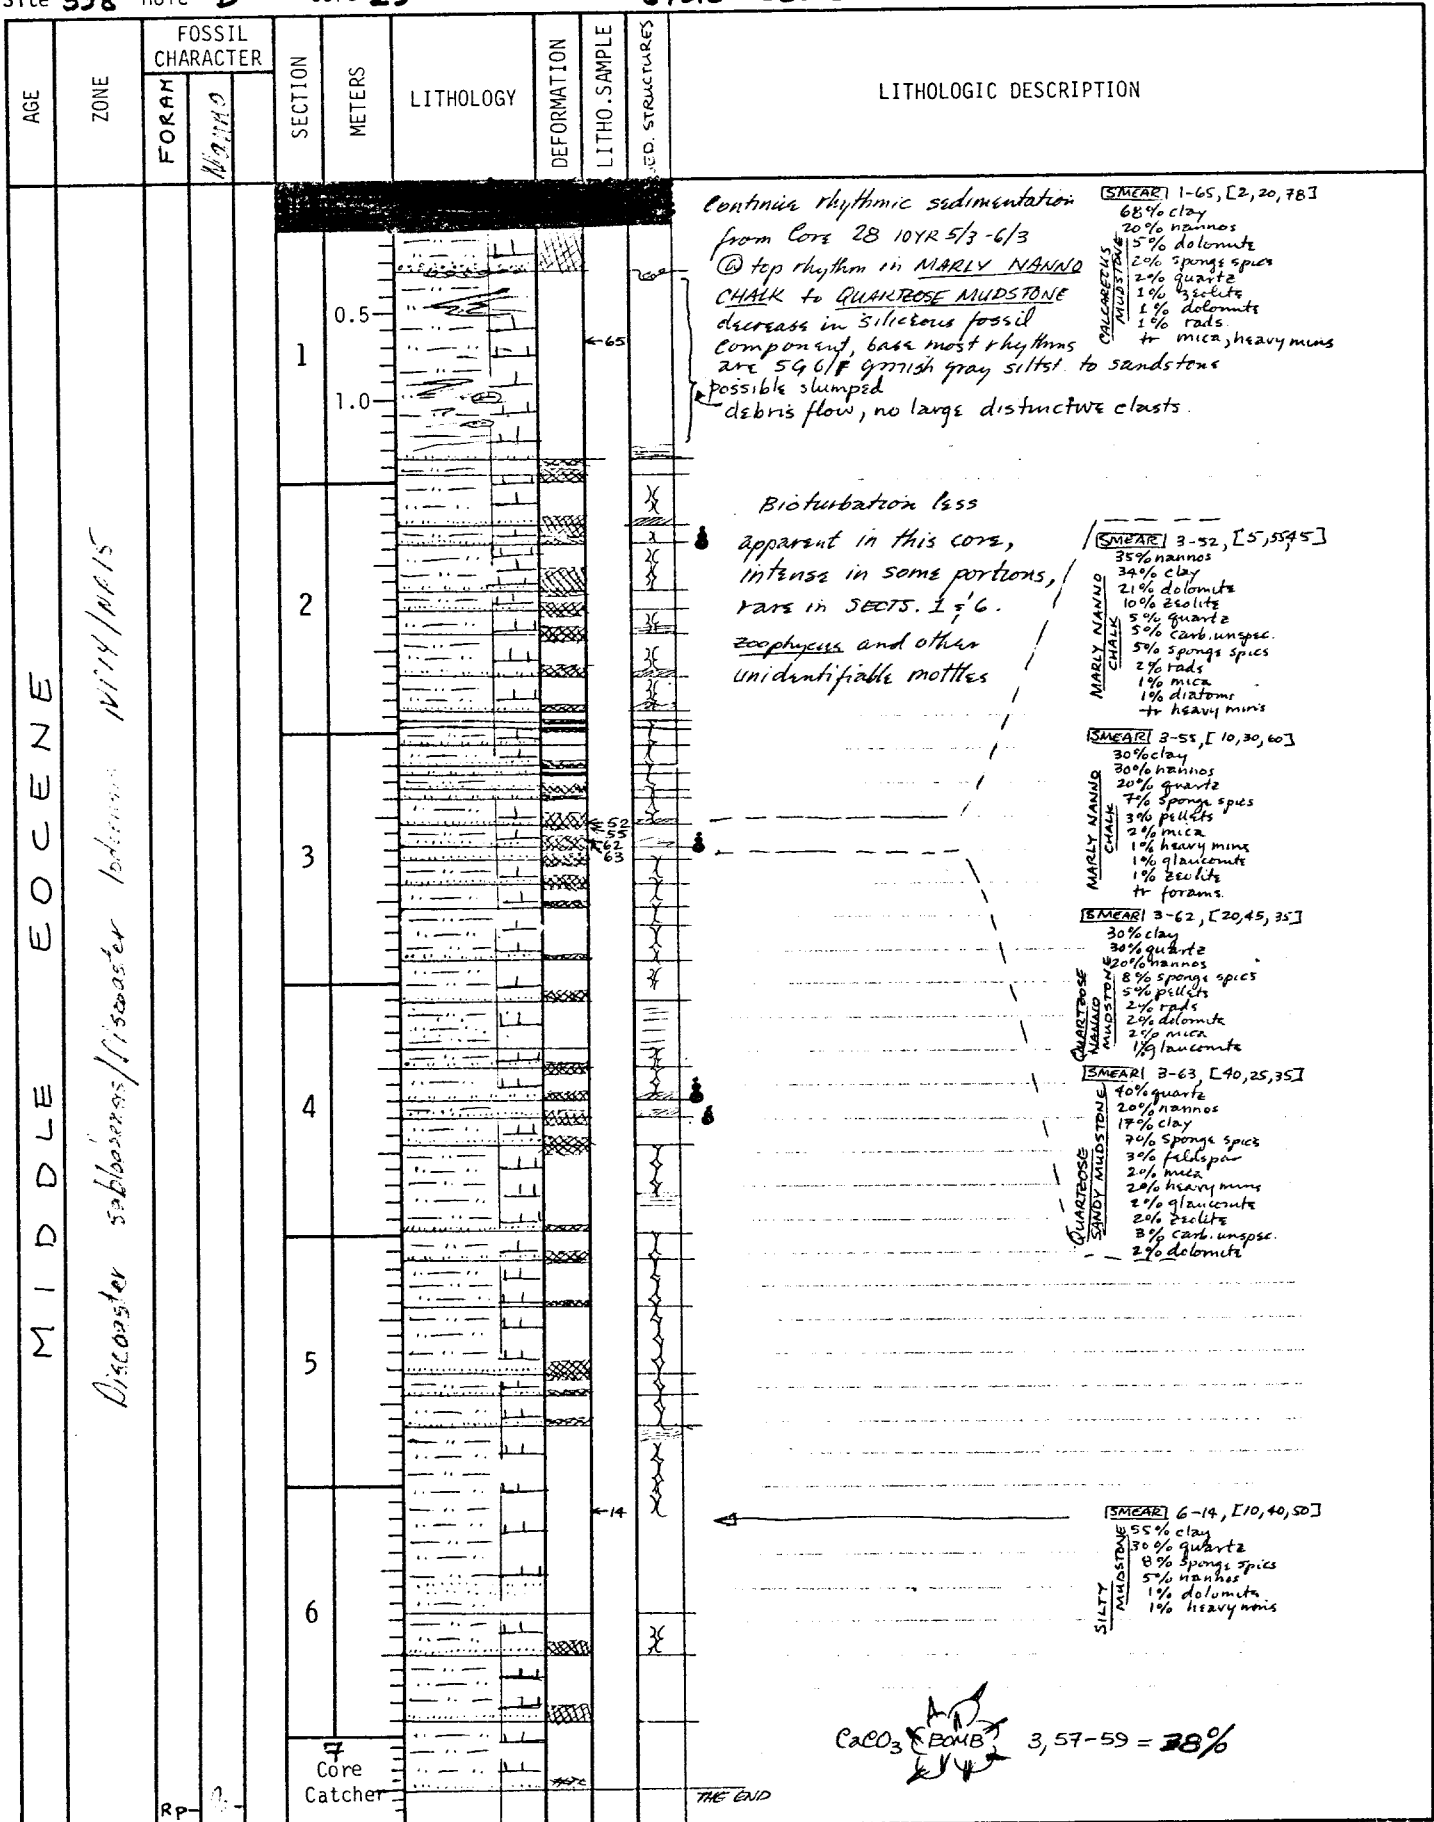 Site 398 Hole D Core 29
AGE
ZONE
FOSSIL CHARACTER
FORAM
Nanno
SECTION
METERS
LITHOLOGY
DEFORMATION
LITHO.SAMPLE
SED. STRUCTURES
LITHOLOGIC DESCRIPTION
MIDDLE EOCENE
NP14/NP15
Discoaster
0.5
1.0
1
2
3
4
5
6
7
Core
Catcher
RP
65
52
55
62
63
14
Continue rhythmic sedimentation
from Core 28 10YR 5/3-6/3
@ top rhythm in MARLY NANNO
CHALK to QUARTZOSE MUDSTONE
decrease in siliceous fossil
component, base most rhythms
are 5G 6/1 grnish gray siltst. to sandstone
possible slumped
debris flow, no large distinctive clasts.
SMEAR 1-65, [2,20,78]
CALCAREOUS MUDSTONE
68% clay
20% nannos
5% dolomite
2% sponge spics
2% quartz
1% zeolite
1% dolomite
1% rads.
tr mica, heavy mins
Bioturbation less
apparent in this core,
intense in some portions,
rare in SECTS. 1 & 6.
zoophycus and other
unidentifiable mottles
SMEAR 3-52, [5,5545]
MARLY NANNO CHALK
35% nannos
34% clay
21% dolomite
10% zeolite
5% quartz
5% carb. unspec.
5% sponge spics
2% rads
1% mica
1% diatoms
tr heavy mins
SMEAR 3-55, [10,30,60]
MARLY NANNO CHALK
30% clay
30% nannos
20% quartz
7% sponge spics
3% pellets
2% mica
1% heavy mins
1% glauconite
1% zeolite
tr forams.
SMEAR 3-62, [20,45,35]
QUARTZOSE NANNO MUDSTONE
30% clay
30% quartz
20% nannos
8% sponge spics
5% pellets
2% rads
2% dolomite
2% mica
1% glauconite
SMEAR 3-63, [40,25,35]
QUARTZOSE SANDY MUDSTONE
40% quartz
20% nannos
17% clay
7% sponge spics
3% feldspar
2% mica
2% heavy mins
2% glauconite
2% zeolite
3% carb. unspec.
2% dolomite
SMEAR 6-14, [10,40,50]
SILTY MUDSTONE
55% clay
30% quartz
8% sponge spics
5% nannos
1% dolomite
1% heavy mins
CaCO3 BOMB 3,57-59 = 38%
THE END